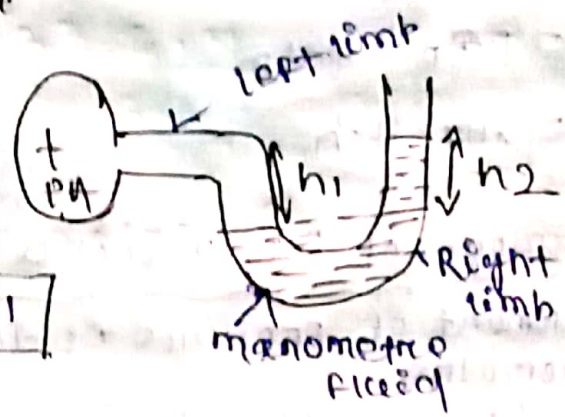 left limb
+
PA
h1
h2
Right
limb
1
manometre
fluid